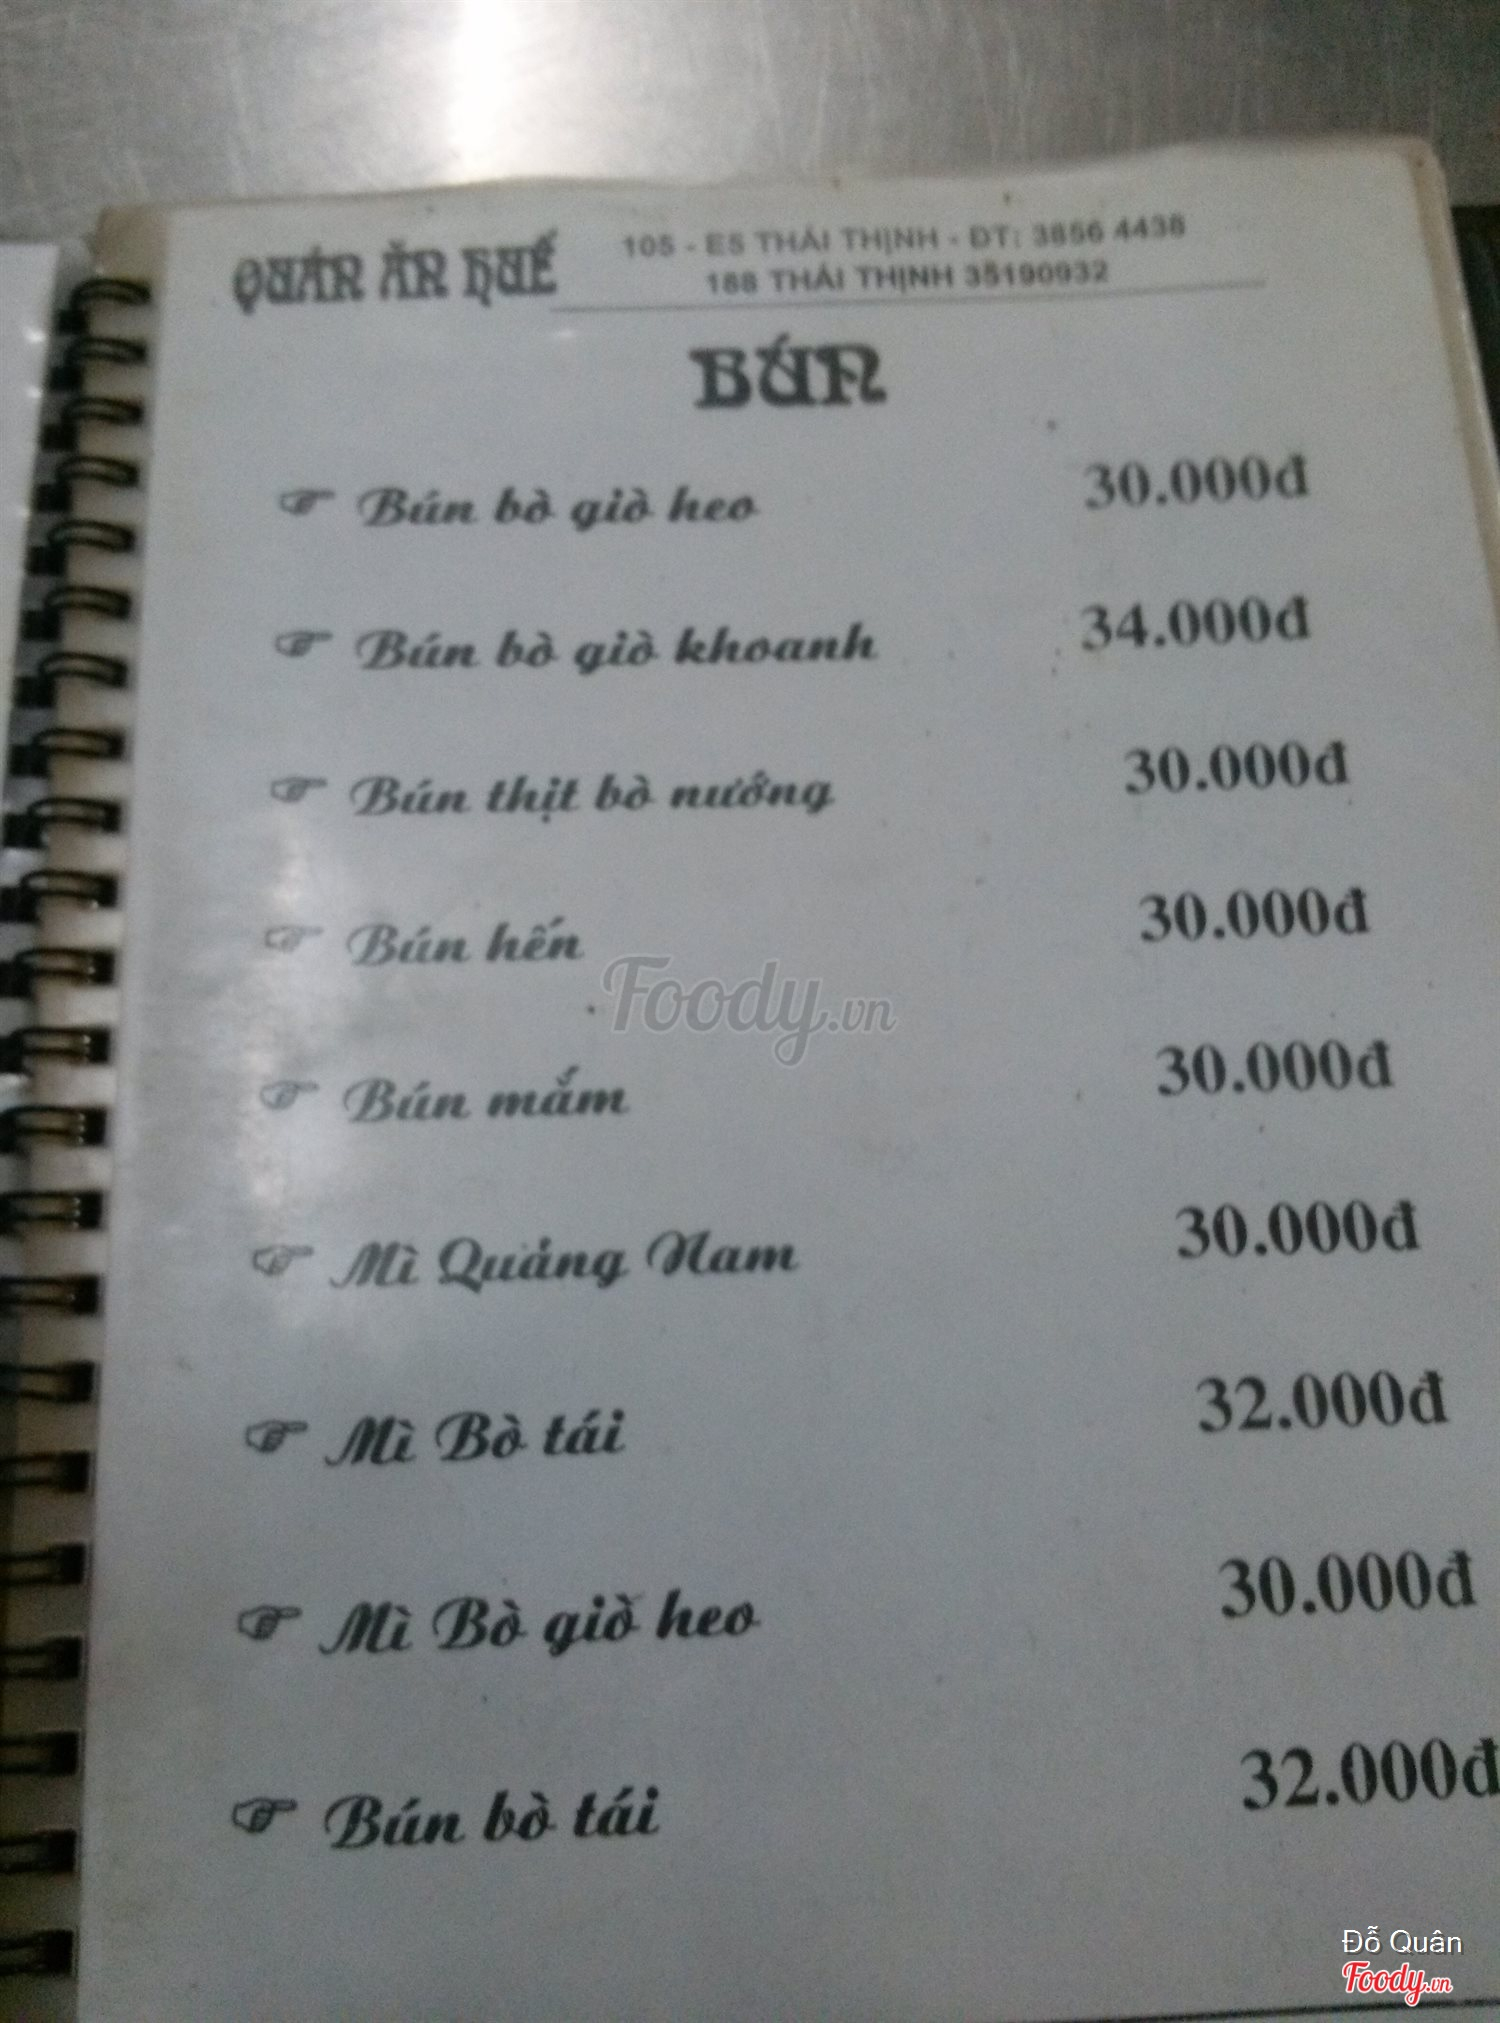 QUÁN ĂN HUẾ
105 - E5 THÁI THỊNH - ĐT: 3856 4438
188 THÁI THỊNH 35190932
BÚN
☞ Bún bò giò heo 30.000đ
☞ Bún bò giò khoanh 34.000đ
☞ Bún thịt bò nướng 30.000đ
☞ Bún hến 30.000đ
Foody.vn
☞ Bún mắm 30.000đ
☞ Mì Quảng Nam 30.000đ
☞ Mì Bò tái 32.000đ
☞ Mì Bò giò heo 30.000đ
☞ Bún bò tái 32.000đ
Đỗ Quân
Foody.vn